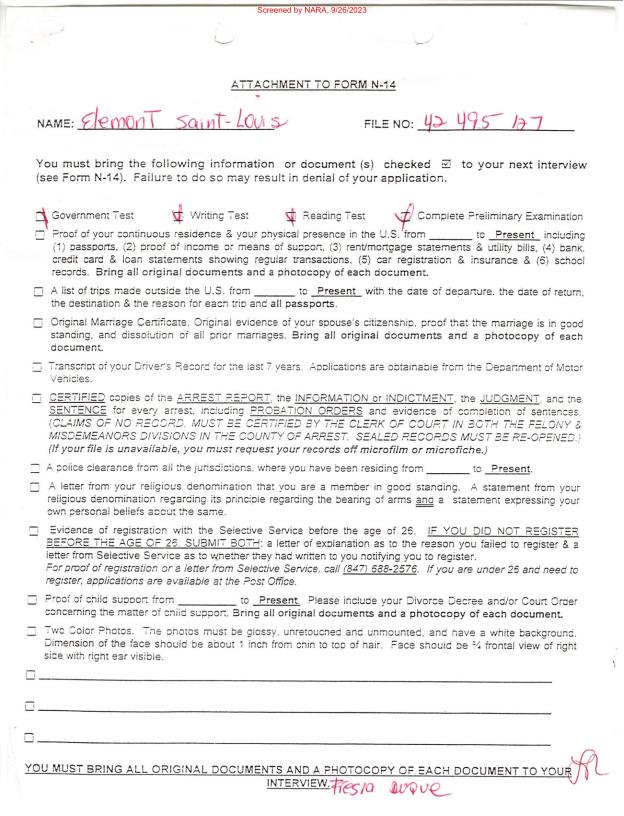 Screened by NARA, 9/26/2023
ATTACHMENT TO FORM N-14
NAME: Elemont Saint-Louis FILE NO: 42 495 127
You must bring the following information or document (s) checked ☑ to your next interview
(see Form N-14). Failure to do so may result in denial of your application.
Government Test Writing Test Reading Test Complete Preliminary Examination
Proof of your continuous residence & your physical presence in the U.S. from ______ to Present including
(1) passports, (2) proof of income or means of support, (3) rent/mortgage statements & utility bills, (4) bank,
credit card & loan statements showing regular transactions, (5) car registration & insurance & (6) school
records. Bring all original documents and a photocopy of each document.
A list of trips made outside the U.S. from ______ to Present with the date of departure, the date of return,
the destination & the reason for each trip and all passports.
Original Marriage Certificate, Original evidence of your spouse's citizenship, proof that the marriage is in good
standing, and dissolution of all prior marriages. Bring all original documents and a photocopy of each
document.
Transcript of your Driver's Record for the last 7 years. Applications are obtainable from the Department of Motor
Vehicles.
CERTIFIED copies of the ARREST REPORT, the INFORMATION or INDICTMENT, the JUDGMENT, and the
SENTENCE for every arrest, including PROBATION ORDERS and evidence of completion of sentences.
(CLAIMS OF NO RECORD, MUST BE CERTIFIED BY THE CLERK OF COURT IN BOTH THE FELONY &
MISDEMEANORS DIVISIONS IN THE COUNTY OF ARREST. SEALED RECORDS MUST BE RE-OPENED.)
(If your file is unavailable, you must request your records off microfilm or microfiche.)
A police clearance from all the jurisdictions, where you have been residing from ______ to Present.
A letter from your religious denomination that you are a member in good standing. A statement from your
religious denomination regarding its principle regarding the bearing of arms and a statement expressing your
own personal beliefs about the same.
Evidence of registration with the Selective Service before the age of 26. IF YOU DID NOT REGISTER
BEFORE THE AGE OF 26, SUBMIT BOTH: a letter of explanation as to the reason you failed to register & a
letter from Selective Service as to whether they had written to you notifying you to register.
For proof of registration or a letter from Selective Service, call (847) 688-2576. If you are under 26 and need to
register, applications are available at the Post Office.
Proof of child support from ______ to Present. Please include your Divorce Decree and/or Court Order
concerning the matter of child support. Bring all original documents and a photocopy of each document.
Two Color Photos. The photos must be glossy, unretouched and unmounted, and have a white background.
Dimension of the face should be about 1 inch from chin to top of hair. Face should be ¾ frontal view of right
side with right ear visible.
YOU MUST BRING ALL ORIGINAL DOCUMENTS AND A PHOTOCOPY OF EACH DOCUMENT TO YOUR
INTERVIEW.